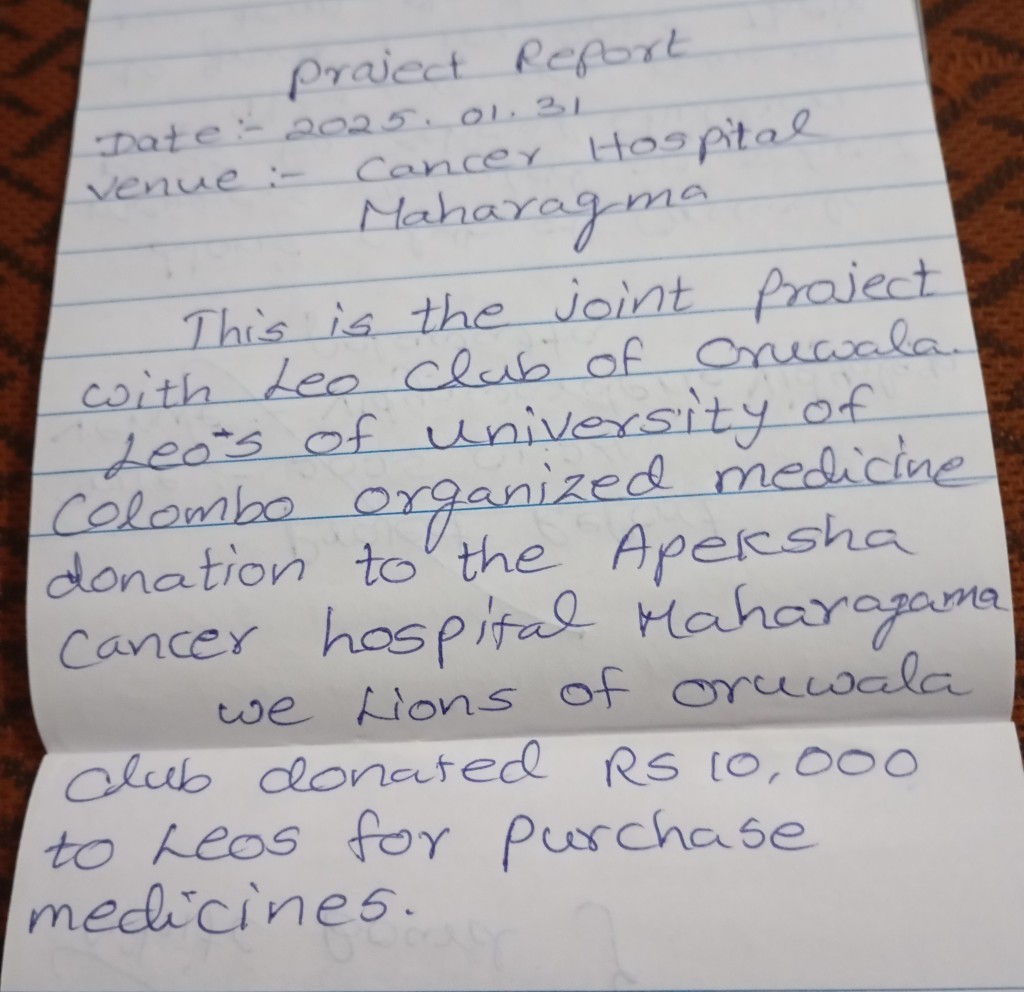 Praject Report
Date :- 2025. 01. 31
Venue :- Cancer Hospital
Maharagma
This is the joint Praject
with Leo Club of Oruwala.
Leo's of university of
Colombo organized medicine
donation to the Apeksha
Cancer hospital Maharagama
we Lions of oruwala
Club donated RS 10,000
to Leos for purchase
medicines.